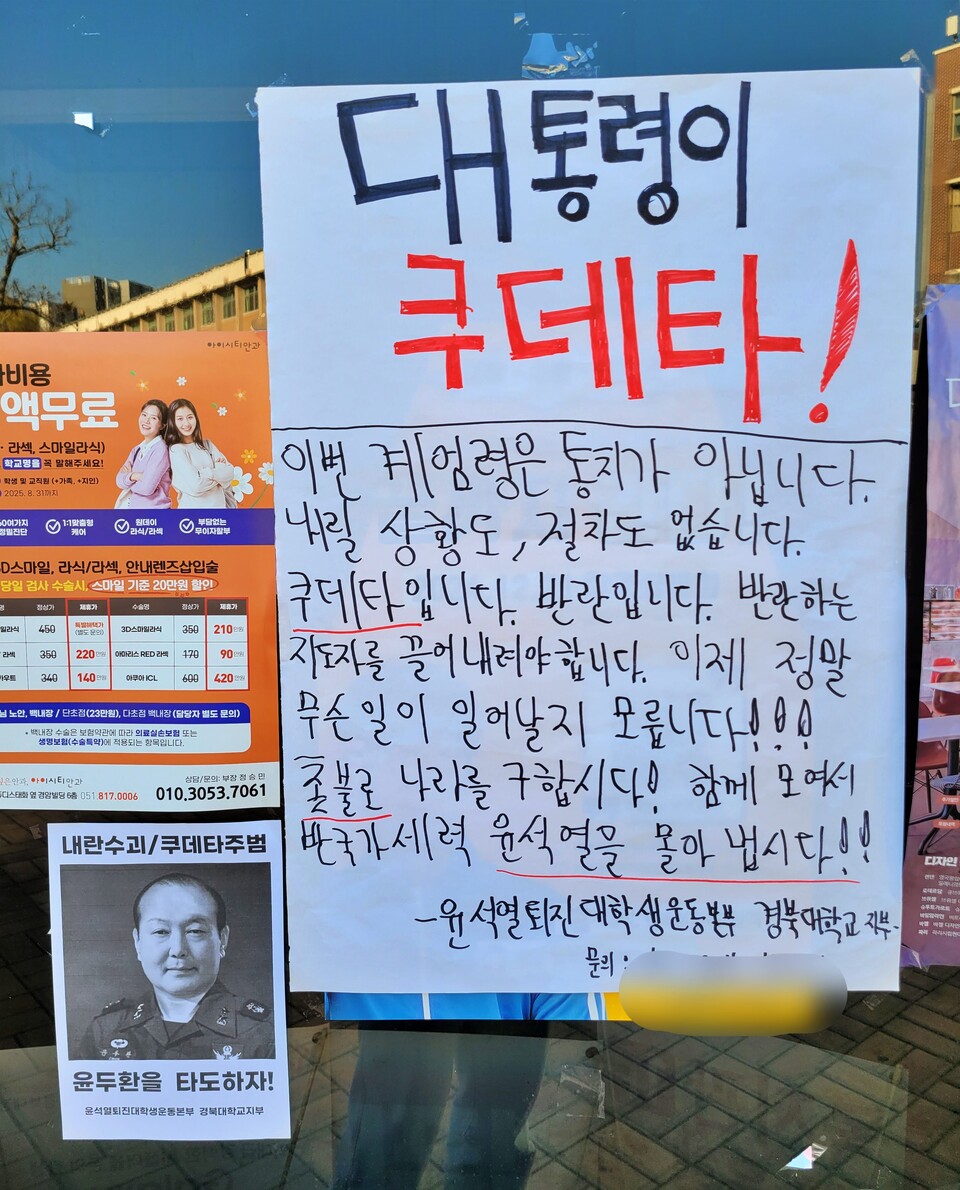 대통령이
쿠데타!
이번 계엄령은 통치가 아닙니다.
내릴 상황도, 절차도 없습니다.
쿠데타입니다. 반란입니다. 반란하는
지도자를 끌어내려야합니다. 이제 정말
무슨일이 일어날지 모릅니다!!!
촛불로 나라를 구합시다! 함께 모여서
반국가세력 윤석열을 몰아 냅시다!!
-윤석열퇴진대학생운동본부 경북대학교지부-
문의 :
아이시티안과
비용
액무료
라섹, 스마일라식)
학교명을 꼭 말해주세요!
학생 및 교직원 (+가족, +지인)
2025. 8. 31까지
60여가지
정밀진단
1:1맞춤형
케어
원데이
라식/라섹
부담없는
무이자할부
3D스마일, 라식/라섹, 안내렌즈삽입술
당일 검사 수술시, 스마일 기준 20만원 할인
명 정상가 제휴가 수술명 정상가 제휴가
일라식 450 특별혜택가 (별도 문의) 3D스마일라식 350 210만원
라섹 350 220만원 아마리스 RED 라섹 170 90만원
아웃트 340 140만원 아쿠아ICL 600 420만원
노안, 백내장 / 단초점(23만원), 다초점 백내장 (담당자 별도 문의)
* 백내장 수술은 보험약관에 따라 의료실손보험 또는
생명보험(수술특약)에 적용되는 항목입니다.
아이시티안과
상담/문의: 부장 정승민
옆 경암빌딩 6층 051 817.0006
010.3053.7061
내란수괴/쿠데타주범
윤두환을 타도하자!
윤석열퇴진대학생운동본부 경북대학교지부
디자인